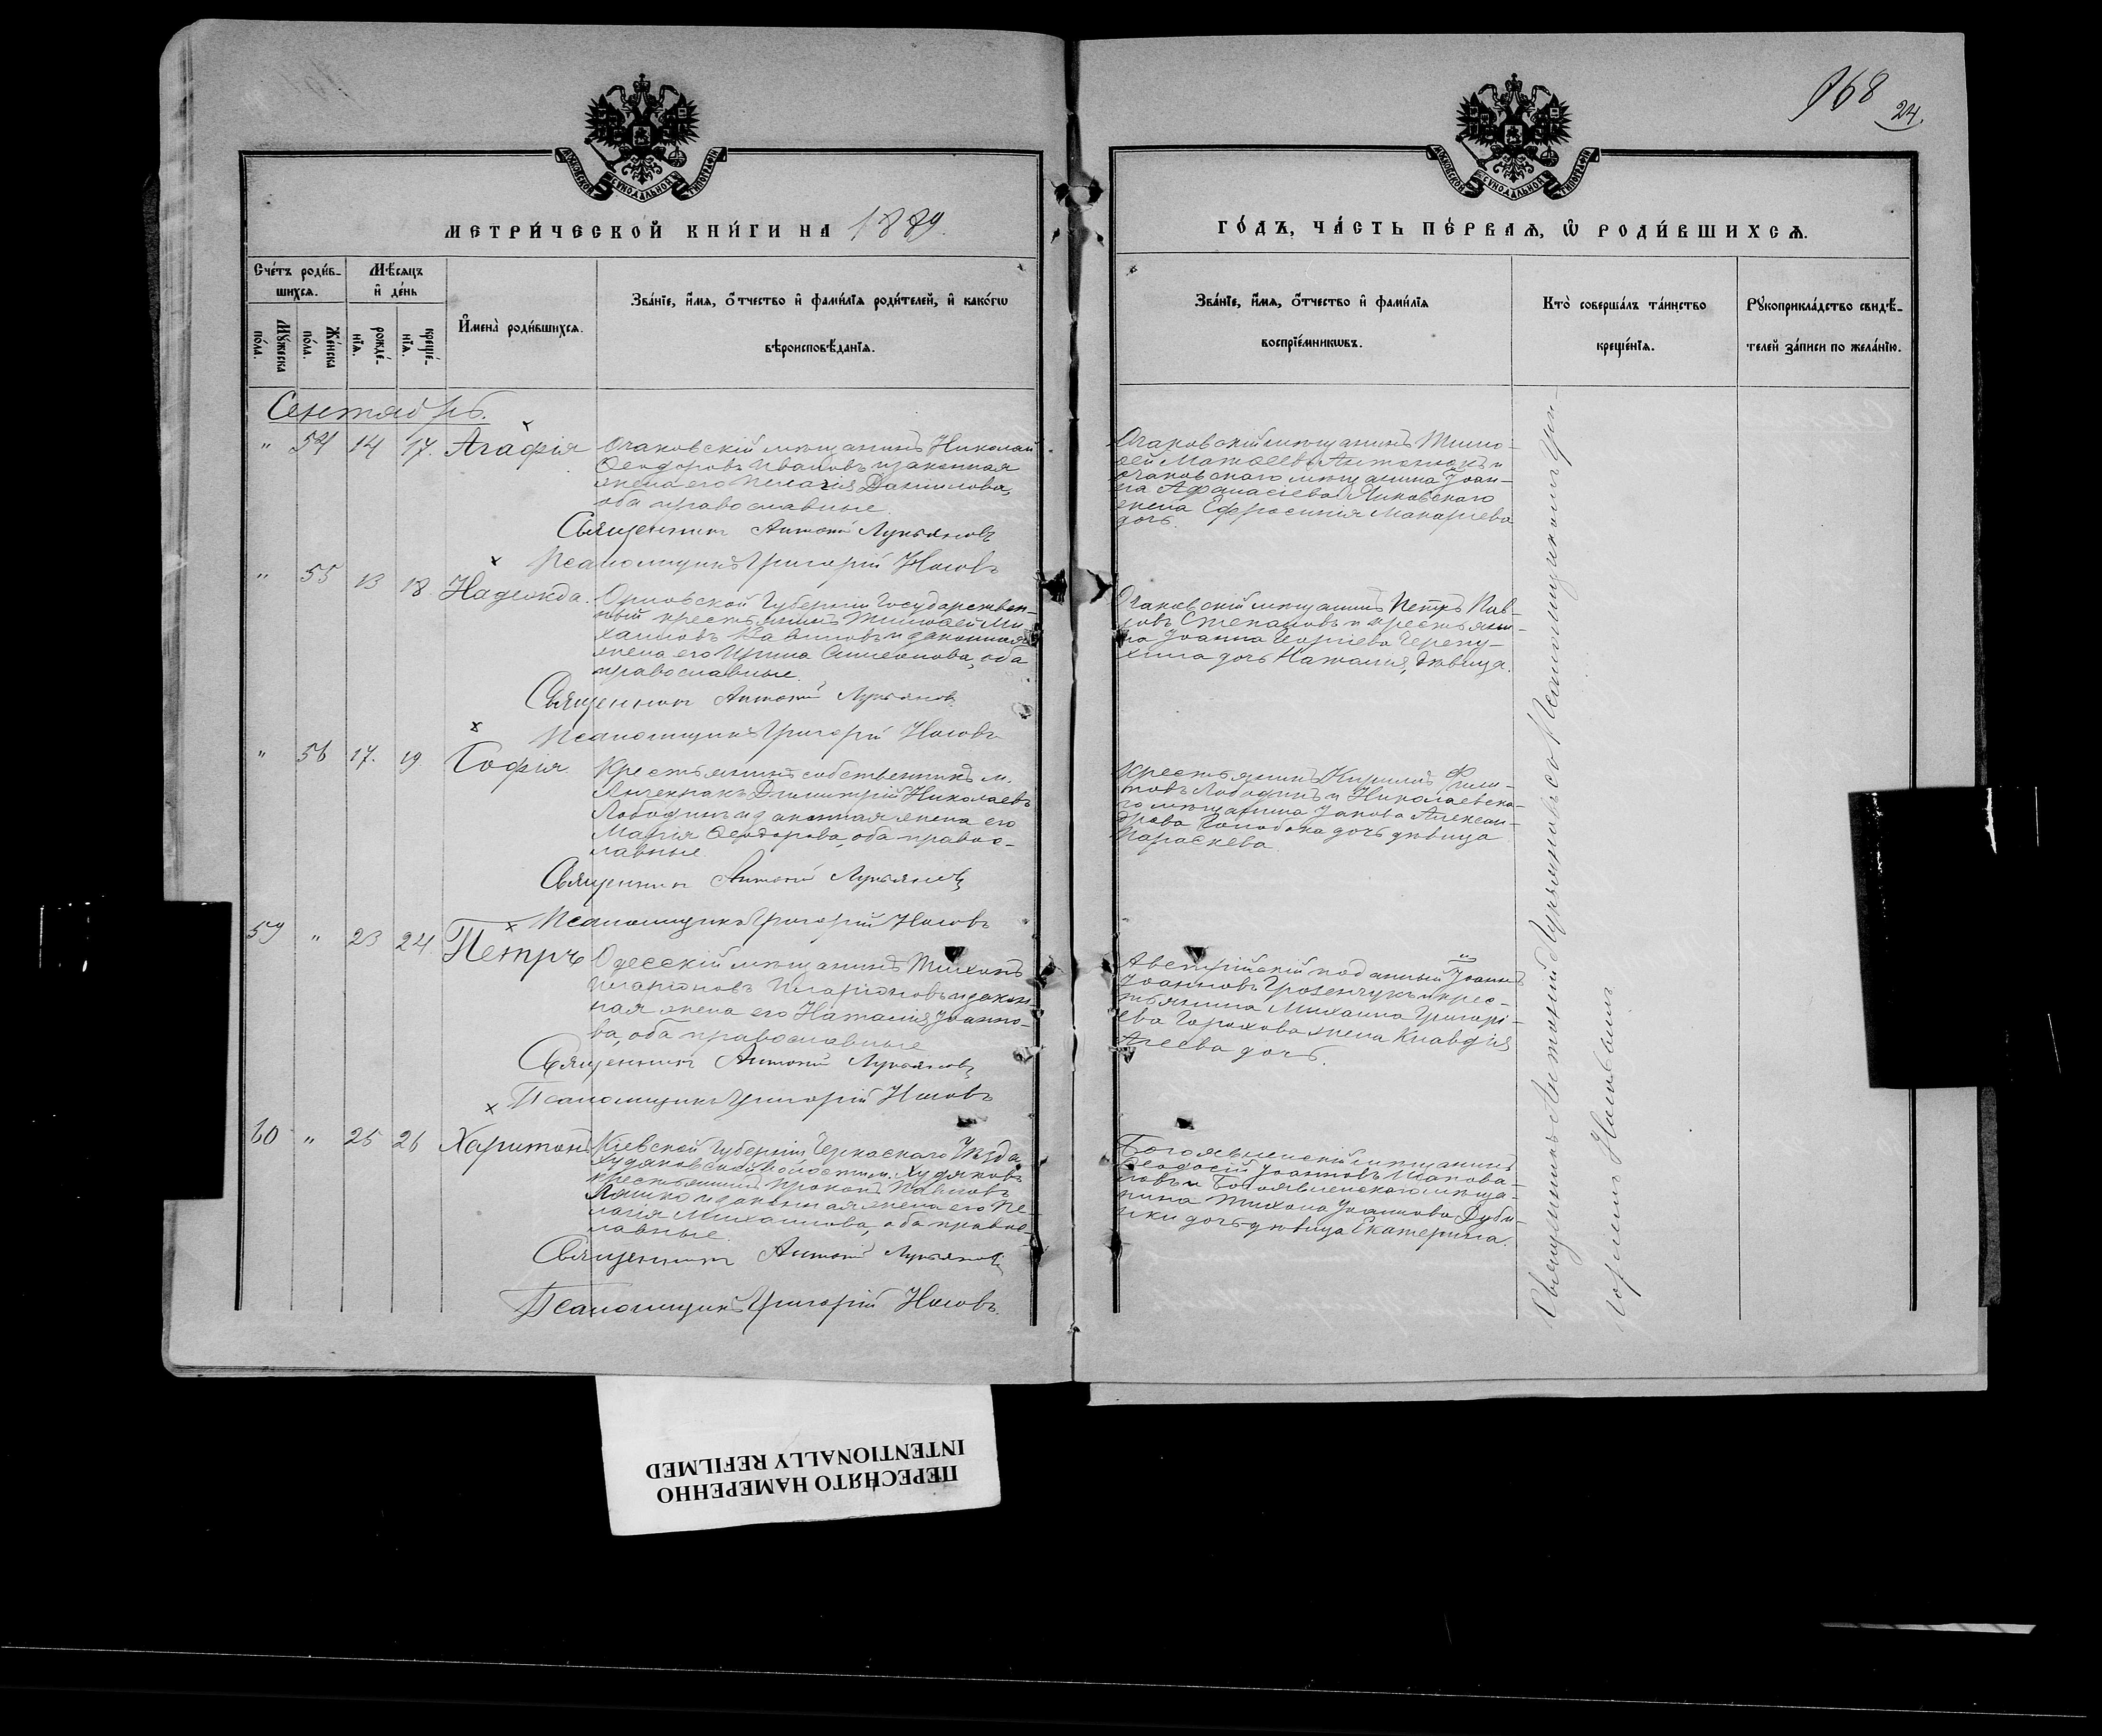 168
24.
МОСКОВСКОЙ СѴНОДАЛЬНОЙ ТИПОГРАФІИ
МОСКОВСКОЙ СѴНОДАЛЬНОЙ ТИПОГРАФІИ
МЕТРИ́ЧЕСКОЙ КНИ́ГИ НА 1889.
ГО́ДЪ, ЧА́СТЬ ПЕ́РВАѦ, Ѡ РОДИ́ВШИХСѦ.
Сче́тъ роди́в-
шихсѧ.
Му́жеска по́ла.
Же́нска по́ла.
Мѣ́сяцъ
и де́нь
рожде́-
нїѧ.
креще́-
нїѧ.
Имена̀ роди́вшихсѧ.
Зва́нїе, и́мѧ, о́тчество и фами́лїѧ роди́телей, и како́гѡ
вѣроисповѣ́данїѧ.
Зва́нїе, и́мѧ, о́тчество и фами́лїѧ
воспрїе́мникѡвъ.
Кто̀ соверша́лъ та́инство
креще́нїѧ.
Рꙋкоприкла́дство свидѣ́-
телей за́писи по жела́нїю.
Сентябрь.
" 54 14 17. Агафія
Очаковскій мѣщанинъ Николай
Ѳеодоровъ Ивановъ и законная
жена его Пелагія Даниилова,
оба православные.
Священникъ Антоній Лукьяновъ
Псаломщикъ Григорій Носовъ
Очаковскій мѣщанинъ Тимо-
ѳей Матѳеевъ Антонюкъ и
очаковскаго мѣщанина Іоан-
на Аѳанасіева
жена Ефросинія Макаріева
дочь.
" 55 13 18 Надежда.
Орловской Губерніи Государствен-
ный крестьянинъ Тимоѳей Ми-
хаиловъ и законная
жена его Ирина Симеонова, оба
православные.
Священникъ Антоній Лукьяновъ
Псаломщикъ Григорій Носовъ
Очаковскій мѣщанинъ Петръ Пав-
ловъ Степановъ и крестьяни-
на Іоанна Георгіева Черепу-
хина дочь Наталія, дѣвица.
" 56 17. 19. Софія.
Крестьянинъ собственникъ м.
Анчекракъ Димитрій Николаевъ
Лободинъ и законная жена его
Марія Ѳеодорова, оба правос-
лавные.
Священникъ Антоній Лукьяновъ
Псаломщикъ Григорій Носовъ
Крестьянинъ Кириллъ Фили-
повъ Лободинъ и Николаевска-
го мѣщанина Іакова Алексан-
дрова дочь дѣвица
Параскева.
59 " 23 24. Петръ
Одесскій мѣщанинъ Тихонъ
Иларіоновъ Иларіоновъ и закон-
ная жена его Наталія Іоанно-
ва, оба православные
Священникъ Антоній Лукьяновъ
Псаломщикъ Григорій Носовъ
Австрійскій подданный Іоаннъ
Іоанновъ и крес-
тьянина Михаила Григорі-
ева Горохова жена Клавдія
Агеева дочь.
60 " 25 26 Харитонъ
Кіевской Губерніи Черкаскаго Уѣзда
Худяковской волости м. Худяковъ
крестьянинъ Прокопъ Павловъ
Ляшко и законная жена его Пе-
лагія Михаилова, оба правос-
лавные.
Священникъ Антоній Лукьяновъ
Псаломщикъ Григорій Носовъ.
Богоявленскій мѣщанинъ
Ѳеодосій Іоанновъ Шапова-
ловъ и Богоявленскаго мѣща-
нина Тихона Іоаннова Дуби-
ки дочь дѣвица Екатерина.
Священникъ Антоній Лукьяновъ съ Псаломщикомъ Гри-
горіемъ Носовымъ
ПЕРЕСНЯТО НАМЕРЕННО
INTENTIONALLY REFILMED